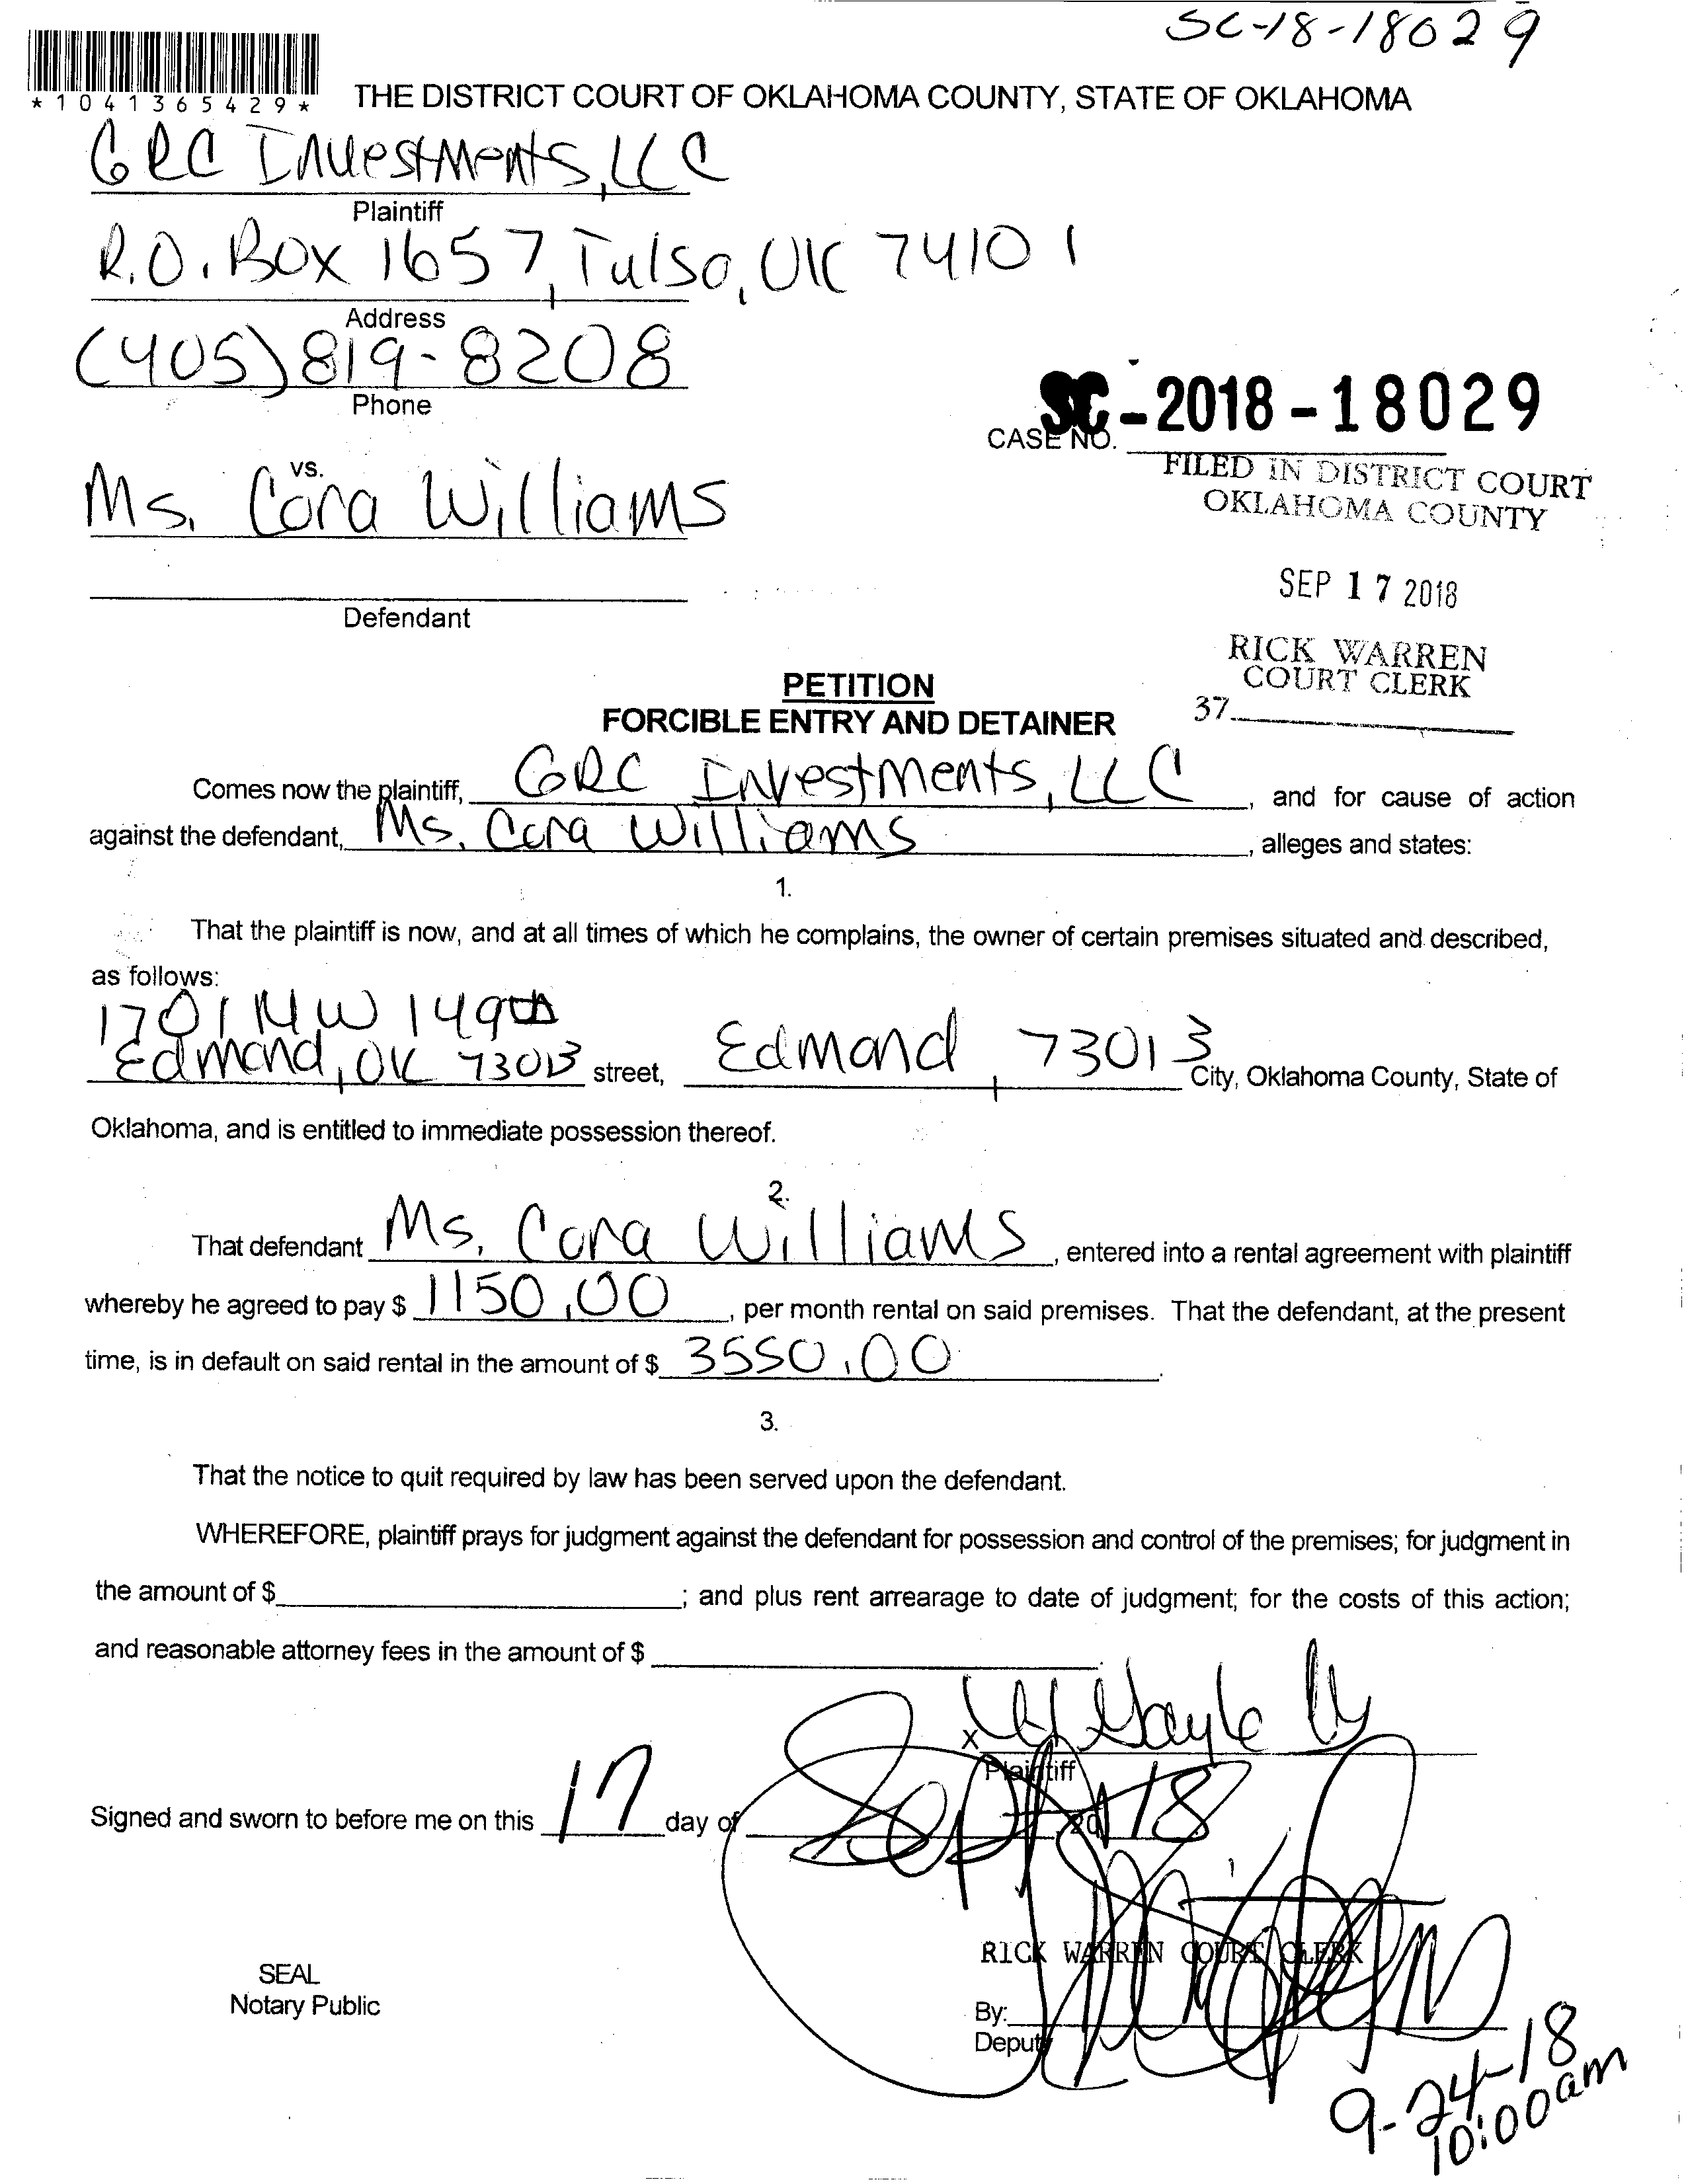 SC-18-18029
*1041365429*
THE DISTRICT COURT OF OKLAHOMA COUNTY, STATE OF OKLAHOMA
GRC Investments, LLC
Plaintiff
P.O. Box 1657, Tulsa, OK 74101
Address
(405) 819-8208
Phone
CASE NO. SC-2018-18029
vs.
Ms. Cora Williams
FILED IN DISTRICT COURT
OKLAHOMA COUNTY
SEP 17 2018
Defendant
RICK WARREN
COURT CLERK
37
PETITION
FORCIBLE ENTRY AND DETAINER
Comes now the plaintiff, GRC Investments, LLC, and for cause of action
against the defendant, Ms. Cora Williams, alleges and states:
1.
That the plaintiff is now, and at all times of which he complains, the owner of certain premises situated and described,
as follows:
1701 NW 149th
Edmond, OK 73013 street, Edmond, 73013 City, Oklahoma County, State of
Oklahoma, and is entitled to immediate possession thereof.
2.
That defendant Ms. Cora Williams, entered into a rental agreement with plaintiff
whereby he agreed to pay $ 1150.00, per month rental on said premises. That the defendant, at the present
time, is in default on said rental in the amount of $ 3550.00.
3.
That the notice to quit required by law has been served upon the defendant.
WHEREFORE, plaintiff prays for judgment against the defendant for possession and control of the premises; for judgment in
the amount of $ ; and plus rent arrearage to date of judgment; for the costs of this action;
and reasonable attorney fees in the amount of $ .
X Gayle
Plaintiff
Signed and sworn to before me on this 17 day of Sept, 2018
RICK WARREN COURT CLERK
SEAL
Notary Public
By:
Deputy
9-24-18
10:00am